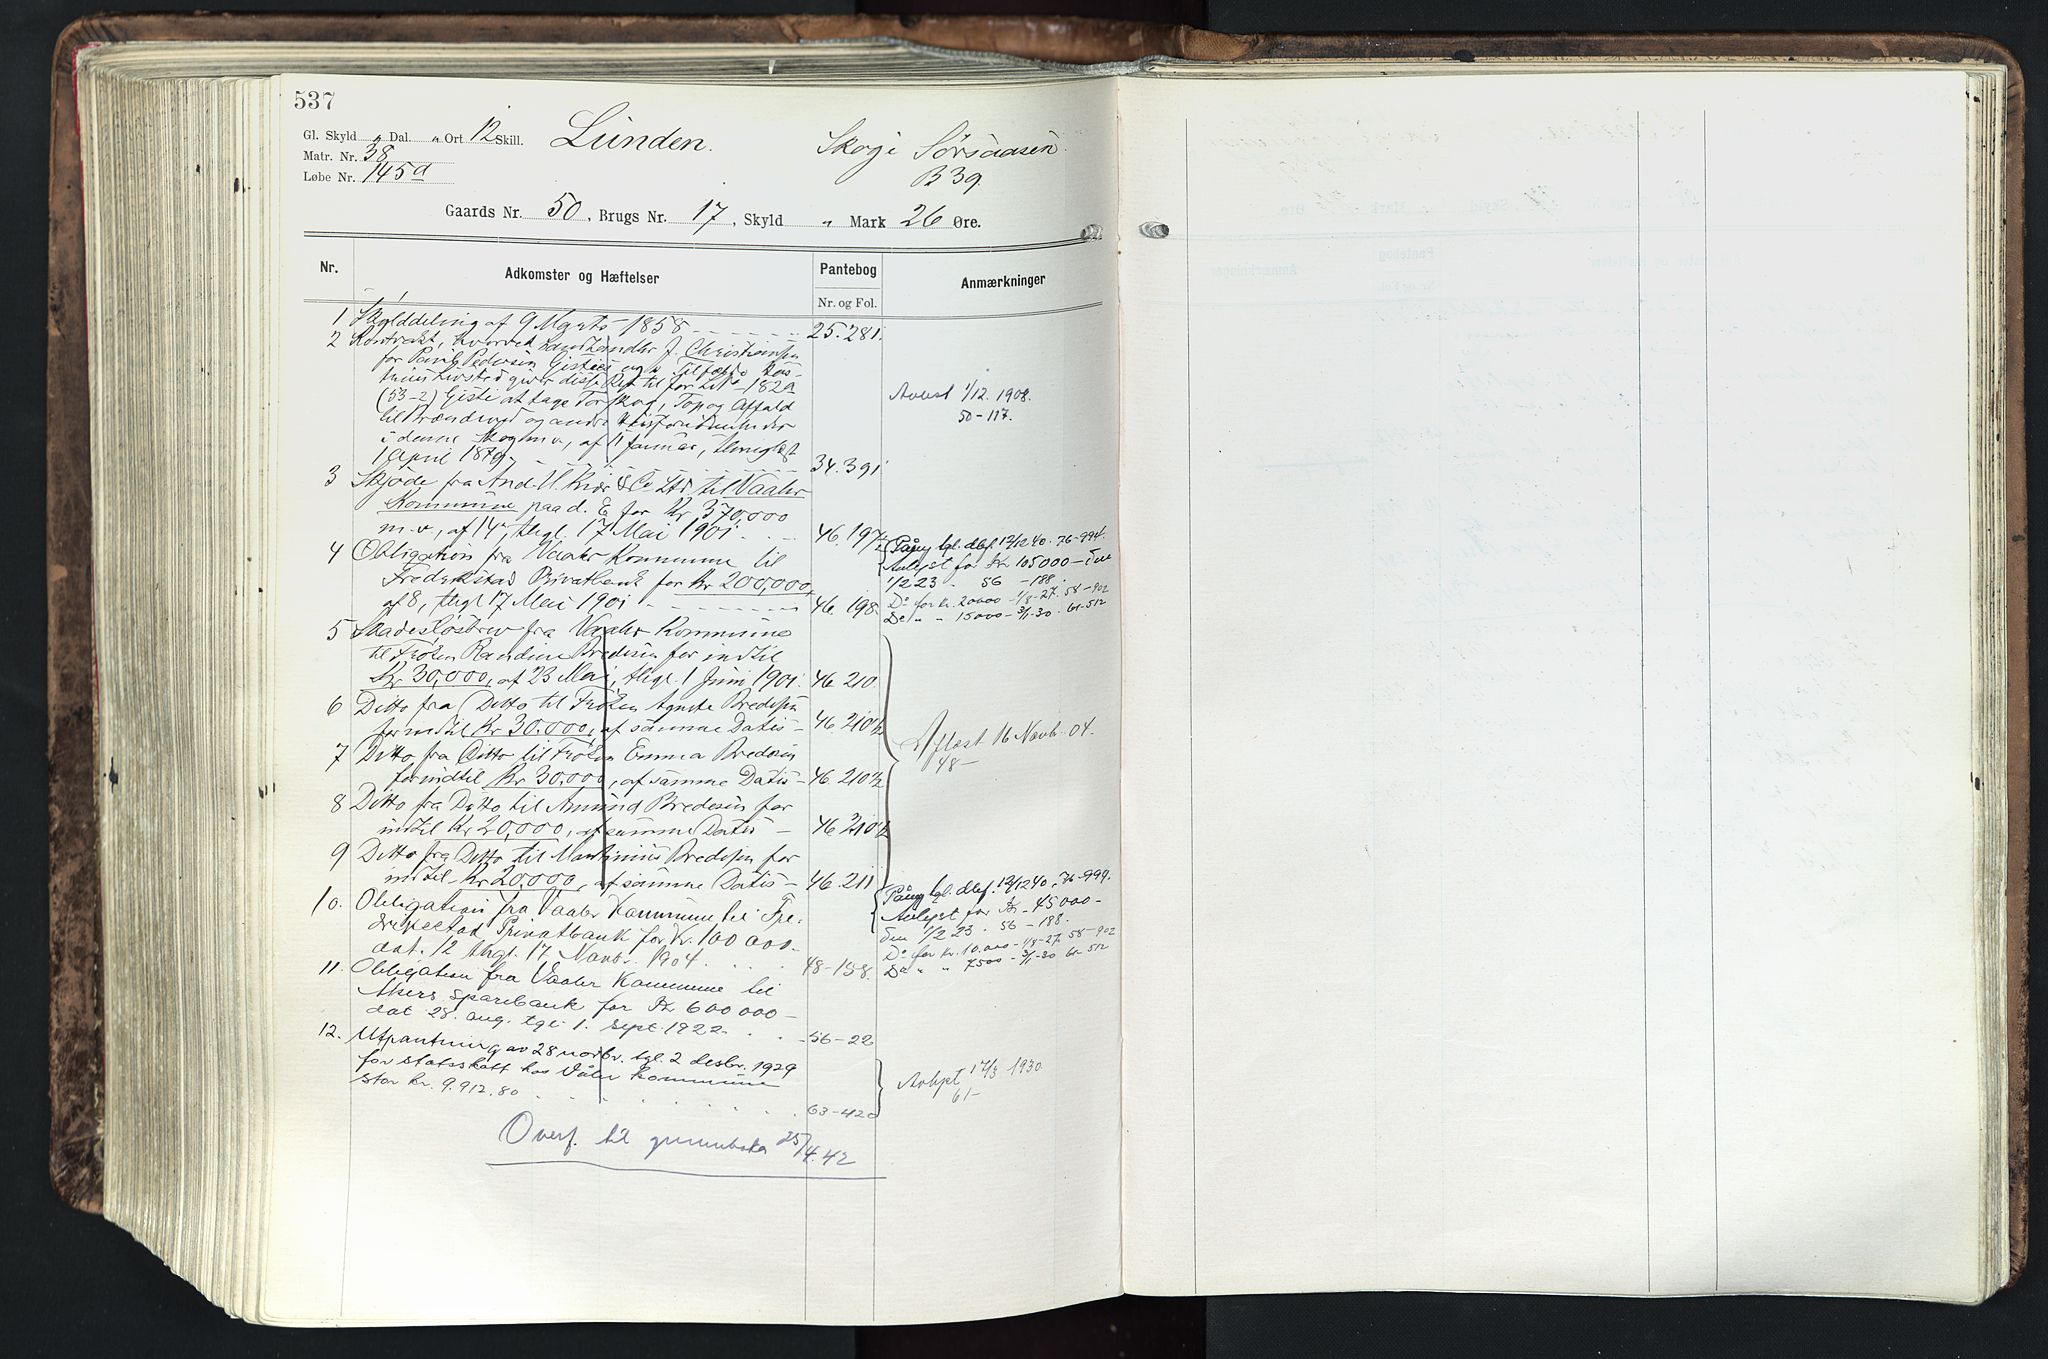 537
Gl. Skyld „ Dal. „ Ort 12 Skill.
Matr. Nr. 38
Løbe Nr. 145a
Lunden.
Skog i Sørsaasen.
B 39.
Gaards Nr. 50, Brugs Nr. 17, Skyld „ Mark 26 Øre.
Nr. Adkomster og Hæftelser Pantebog Anmærkninger
Nr. og Fol.
1 Skylddeling af 9 Marts 1858 25.281.
2 Kontrakt, hvorved J. Christiansen
for Pedersen
giver disse Ret til for LNo 182a
(53-2) Giste at tage Torskog, Top og Affald
til Brændeved og andre
i denne Skog m.v, af 11 januar, thinglæst
1 April 1879. 34.391.
Avlæst 1/12. 1908.
50-117.
3 Skjøde fra And. H. Kiær & Co Ltd. til Vaaler
Kommune paa d. E for Kr 370,000
m.v, af 14, thgl. 17 Mai 1901. 46.197
4 Obligation fra Vaaler Kommune til
Fredrikstad Privatbank for Kr 200,000,
af 8, thgl 17 Mai 1901. 46.198.
Påny tgl. dbf. 12/12 40. 76-994.
Avlyst for Kr 105000 - den
1/2 23. 56 -188.
Do for kr. 20000 - 1/8-27. 58-902
Do „ „ 15000 - 3/1-30. 61-512
5 Skadesløsbrev fra Vaaler Kommune
til Frøken Randine Bredesen for indtil
Kr 30,000, af 23 Mai, thgl. 1 Juni 1901. 46.210.
6 Ditto fra Ditto til Frøken Agnete Bredesen
for indtil Kr 30.000, af samme Datis - 46.210
7 Ditto fra Ditto til Frøken Emma Bredesen
for indtil Kr 30.000, af samme Datis - 46.210
8 Ditto fra Ditto til Amund Bredesen for
indtil Kr 20,000, af samme Datis - 46.210
9 Ditto fra Ditto til Martinius Bredesen for
indtil Kr 20,000, af samme Datis - 46.211
Aflæst 16 Novb. 04.
48-
10. Obligation fra Vaaler Kommune til Fre-
drikstad Privatbank for Kr. 100 000.-
dat. 12 thgl. 17. Novb. 1904. 48-158.
Påny tgl. dbf. 12/12 40. 76-999.
Avlyst for Kr - 45000 -
den 1/2 23. 56 - 188.
Do for kr. 10.000 - 1/8-27. 58-902
Do „ „ 7500 - 3/1-30 61-512
11. Obligation fra Vaaler Kommune til
Akers sparebank for Kr 600 000 -
dat 28. aug. tgl. 1. sept. 1922. 56-22
12. Utpantning av 28 novbr. tgl. 2 desbr. 1929
for statsskatt hos Våler kommune
stor kr. 9.912.80 63-420
Avlyst 17/3 1930.
61-
Overf. til grunnboka 25/4.42